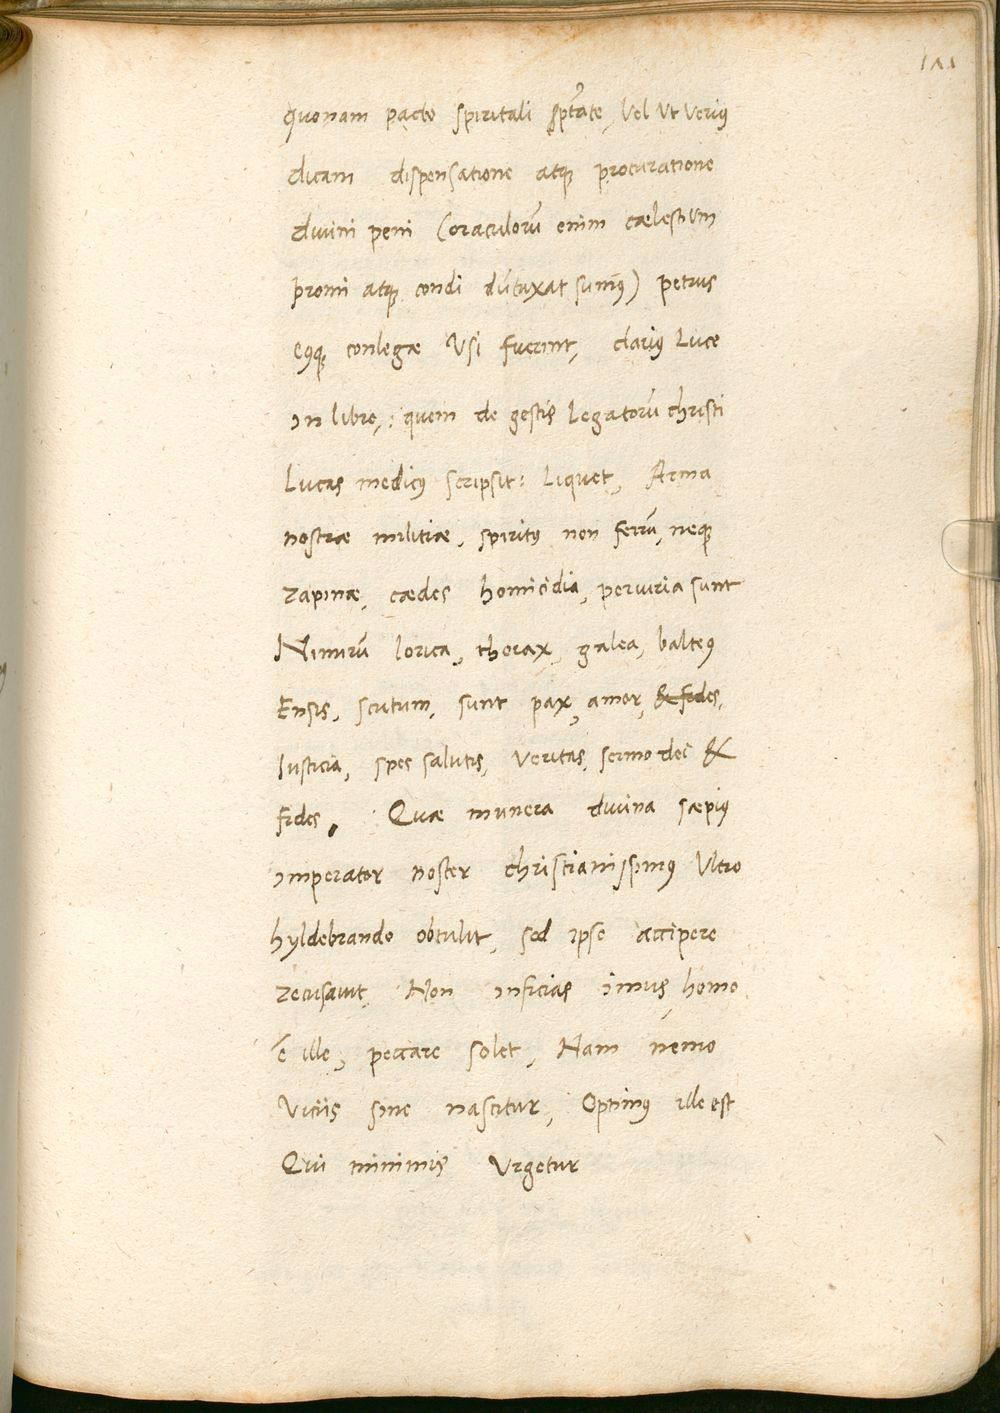 1ΛΛ
quonam pacto spiritali ptãte, Vel Vt Veriꝰ
dicam dispensatione atqꝫ procuratione
diuini peni (oraculorũ enim cælestium
promi atqꝫ condi dũtaxat sumꝰ) petrus
eiꝰqꝫ conlegæ Vsi fuerint, clariꝰ Luce
in libro,: quem de gestis Legatorũ christi
Lucas medicꝰ scripsit: Liquet, Arma
nostræ militiæ, spiritꝰ non ferrũ, neqꝫ
rapinæ, cædes homicidia, periuria sunt
Nimirũ lorica, thorax, galea, balteꝰ
Ensis, scutum, sunt pax, amor, & fides,
Iusticia, spes salutis, Veritas, sermo dei &
fides, Quæ munera diuina sæpiꝰ
imperator noster christianissimꝰ Vltro
hyldebrando obtulit, sed ipse accipere
recusauit, Non inficias imus, homo
ẽ ille, peccare solet, Nam nemo
Viciis sine nascitur, Optimꝰ ille est
Qui minimis Vrgetur